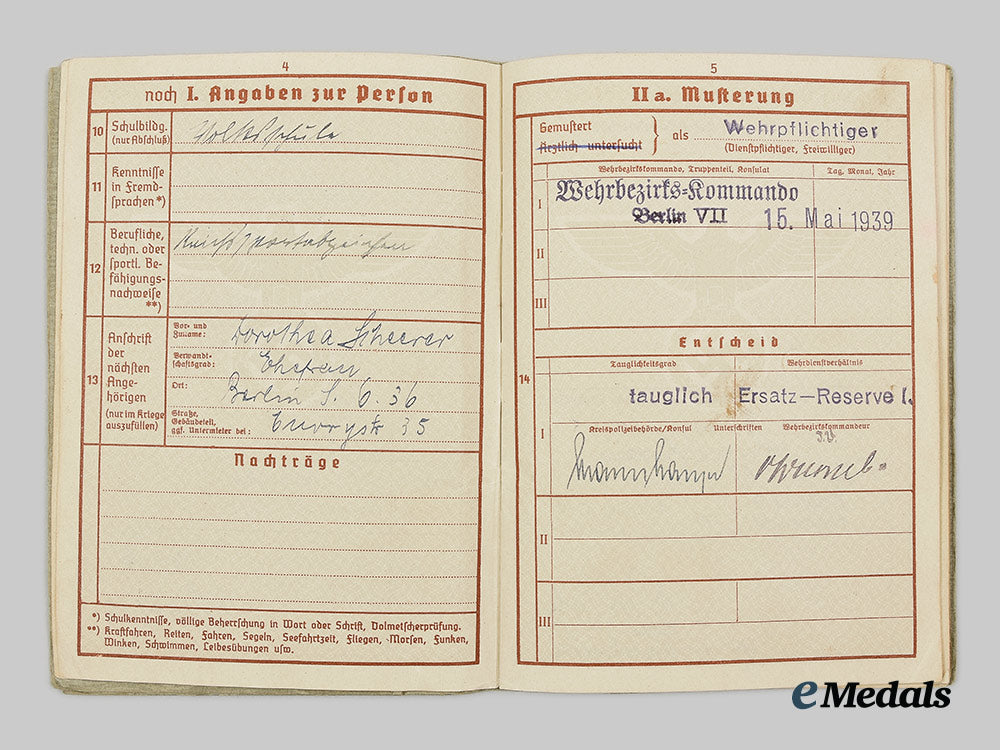 4
noch I. Angaben zur Person
10
Schulbildg.
(nur Abschluß)
Volksschule
11
Kenntnisse
in Fremd-
sprachen *)
12
Berufliche,
techn. oder
sportl. Be-
fähigungs-
nachweise
**)
Reichssportabzeichen
13
Anschrift
der
nächsten
Ange-
hörigen
(nur im Kriege
auszufüllen)
Vor- und
Zuname:
Dorothea Scheerer
Verwandt-
schaftsgrad:
Ehefrau
Ort:
Berlin S. O. 36
Straße,
Gebäudeteil,
ggf. Untermieter bei:
Cuvrystr 35
Nachträge
*) Schulkenntnisse, völlige Beherrschung in Wort oder Schrift, Dolmetscherprüfung.
**) Kraftfahren, Reiten, Fahren, Segeln, Seefahrtzeit, Fliegen, Morsen, Funken,
Winken, Schwimmen, Leibesübungen usw.
5
II a. Musterung
Gemustert
ärztlich untersucht
} als Wehrpflichtiger
(Dienstpflichtiger, Freiwilliger)
Wehrbezirkskommando, Truppenteil, Konsulat
Tag, Monat, Jahr
I
Wehrbezirks-Kommando
Berlin VII 15. Mai 1939
II
III
Entscheid
14
Tauglichkeitsgrad
Wehrdienstverhältnis
tauglich Ersatz-Reserve I.
I
Kreispolizeibehörde/Konsul Unterschriften Wehrbezirkskommandeur
II
III
eMedals